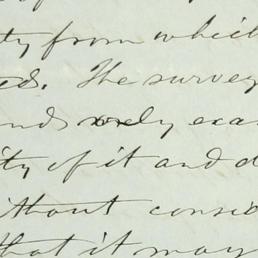 ty from which
ed. The survey
and rely exa
ity of it and d
ithout consid
that it may